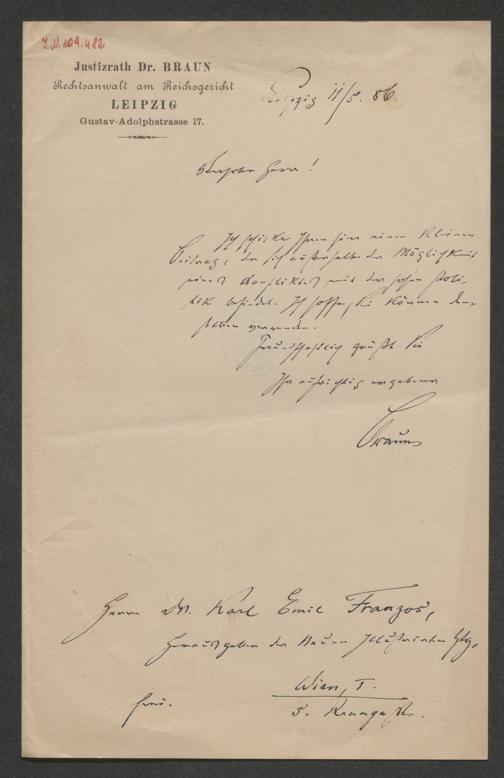 I.N. 109.482
Justizrath Dr. BRAUN
Rechtsanwalt am Reichsgericht
LEIPZIG
Gustav-Adolphstrasse 17.
Leipzig 11/5. 86.
Verehrter Herr!
Ich schicke Ihnen hier einen kleinen
Beitrag, der sich außerhalb der Möglichkeit
eines Konfliktes mit der hohen Poli-
tik befindet. Ich hoffe, Sie können den-
selben verwenden.
Freundschaftlich grüßt Sie
Ihr aufrichtig ergebener
Braun
Herrn Dr. Karl Emil Franzos,
Herausgeber der Neuen Illustrirten Ztg,
Wien, I.
5.
frei.